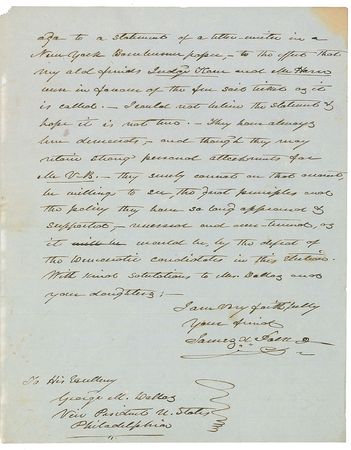 ago to a statement of a letter-writer in a
New York Barnburner paper, - to the effect that
my old friends Judge Kane and Mr Horn
were in favour of the free soil ticket as it
is called. - I could not believe the statement &
hope it is not true. - They have always
been democrats, - and though they may
retain strong personal attachments for
Mr V-B. - they surely cannot on that account,
be willing to see, the great principles and
the policy they have so long approved &
supported, - reversed and over-turned, as
it will be would be, by the defeat of
the Democratic candidates in this election.
With kind salutations to Mrs. Dallas and
your daughters; -
I am Very faithfully
Your friend
James K. Polk
To His Excellency
George M. Dallas
Vice President U. States
Philadelphia